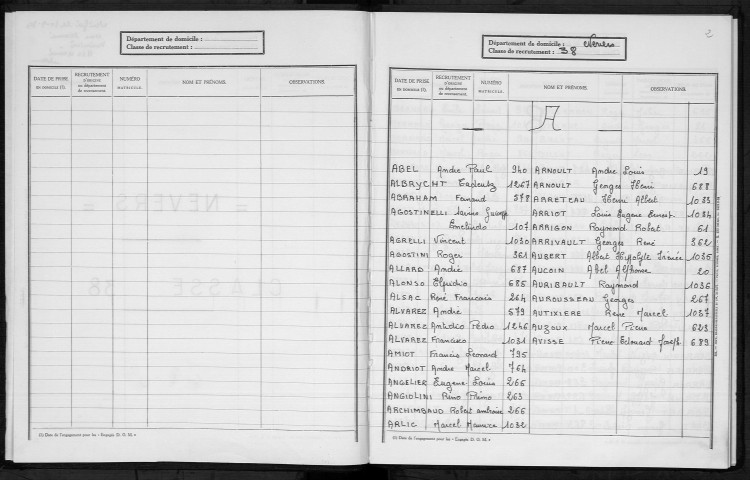 Département de domicile :
Classe de recrutement :
DATE DE PRISE
RECRUTEMENT
NUMÉRO
MATRICULE.
NOM ET PRÉNOMS.
OBSERVATIONS.
= NEVERS =
CLASSE 38
(1) Date de l'engagement pour les « Engagés D. G. M. »
2
Département de domicile : Nevers
Classe de recrutement : 38
DATE DE PRISE
RECRUTEMENT
NUMÉRO
MATRICULE.
NOM ET PRÉNOMS.
OBSERVATIONS.
A
ABEL André Paul 940
ALBRYCHT 1267
ABRAHAM Fernand 578
AGOSTINELLI
107
AGRELLI Vincent 1030
AGOSTINI Roger 361
ALLARD André 687
ALONSO Elpidio 685
ALSAC René Francois 264
ALVAREZ André 579
ALVAREZ Pedro 1246
ALVAREZ Francisco 1031
AMIOT Francis Leonard 795
ANDRIOT André Marcel 764
ANGELIER Eugene Louis 265
ANGIOLINI Primo 263
ARCHIMBAUD Robert ambroise 266
ARLIC Marcel Maurice 1032
ARNOULT André Louis 19
ARNOULT Georges Henri 688
ARRETEAU Henri Albert 1033
ARRIOT Louis Eugene Ernest 1034
ARRIGON Raymond Robert 61
ARRIVAULT Georges René 362
AUBERT Albert Hippolyte Irénée 1035
AUCOIN Abel Alphonse 20
AURIBAULT Raymond 1036
AUROUSSEAU Georges 267
AUTIXIERE René Marcel 1037
AUZOUX Marcel Pierre 623
AVISSE Pierre Edouard Joseph 689
(1) Date de l'engagement pour les « Engagés D. G. M. »